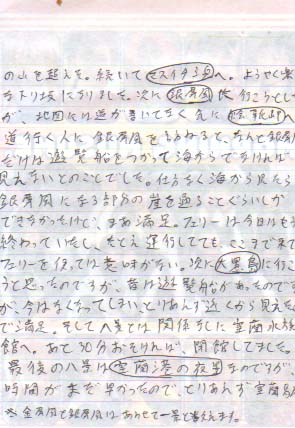 の山を越えて。続いてセスイタラ白へ。ようやく楽
な下り坂になりました。次に銀屏風に行こうとし
が、地図には道が書いてなく、先に絵鞆岬へ
道行く人に、銀屏風をたずねると、なんと銀
だけは遊覧船をつかって海からでなければ
見えないとのことでした。仕方なく海から見たら
銀屏風になる部分の崖を通ることぐらいしか
できなかったけど、まあ満足。フェリーは今日はも
終わっていたし、たとえ運行してても、ここまで来て
フェリーを使っては意味がない。次に大黒島に行こ
うと思ったのですが、昔は遊覧船があったので
が、今はなくなってしまい、とりあえず近くから見えた
で満足。そして八景とは関係なしに室蘭水族
館へ。あと30分おそければ、閉館してました。
最後の八景は室蘭港の夜景なのですが、
時間がまだ早かったので、とりあえず室蘭
※金屏風と銀屏風はあわせて一景と考えます。